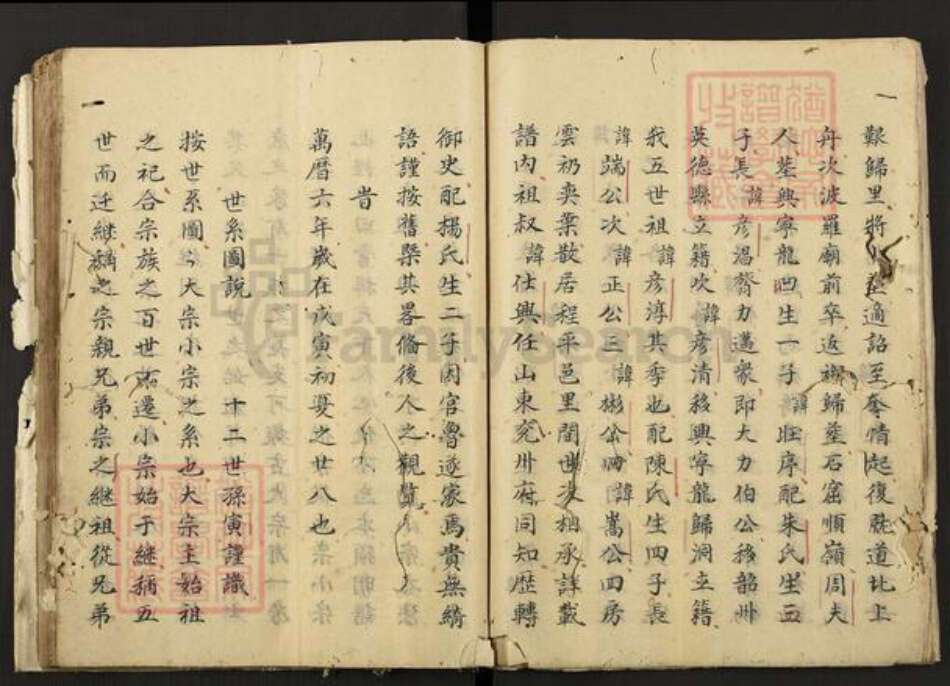 艱歸里將 適詔至奪情起復就道北上
舟次波羅廟前卒返櫬歸塟石窟順嶺周夫
人塟興寧龍凹生一子諱 序配朱氏生三
子長諱彥過膂力邁衆即大力伯公移韶州
英德縣立籍次諱彥清移興寧龍歸洞立籍
我五世祖諱彥淳其季也配陳氏生四子長
諱端公次諱正公三諱彬公四諱嵩公四房
雲礽奕葉散居程平邑里間世次相承詳載
譜內祖叔諱仕興任山東兗州府同知歷轉
御史配楊氏生二子因官魯遂家焉貴無綉
語謹按舊槩其畧俻後人之觀覽
旹
萬曆六年歲在戊寅初夏之廿八也
世系圖說 十二世孫寅謹識
按世系圖今大宗小宗之系也大宗主始祖
之祀合宗族之百世不遷小宗始于継稱五
世而迁継稱之宗親兄弟宗之継祖從兄弟
FamilySearch